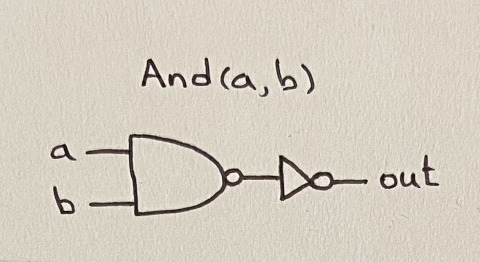 And(a,b)
a
b
out